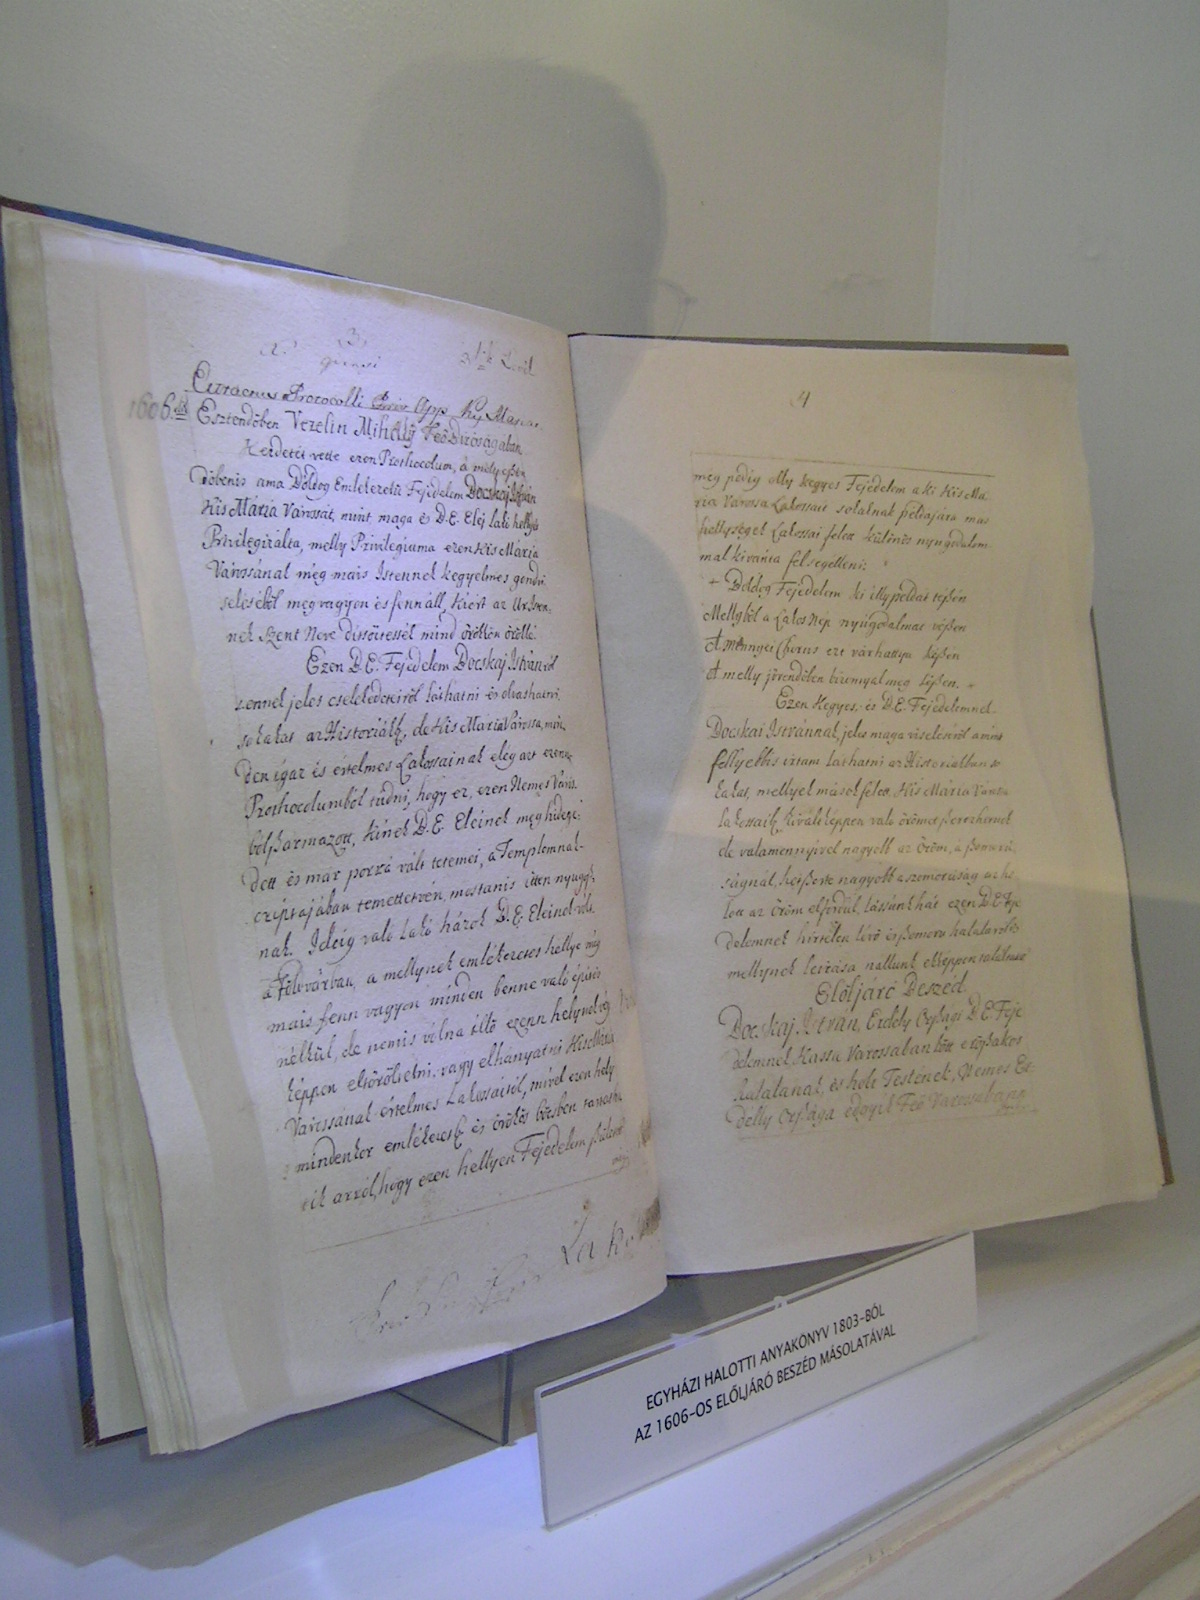 3.
quasi
Extractus Protocolli
1606. dik Esztendőben Vezelin Mihály Feő Biróságában
Kezdetit vette ezen Prothocolum, a mely
dőbenis ama Boldog Emlekezetü Fejedelem Bocskaj István
Kis Mária Várossát, mint maga és B. E. Elej lakó hellyét
Privilegiálta, melly Privilegiuma ezen Kis Maria
Várossánal még mais Istennek kegyelmes gondvi-
seléséből megvagyon és fennáll, kiért az Ur Isten-
nek Szent Neve ditsőitessék mind örökkön örökké.
Ezen B. E. Fejedelem Bocskaj Istvánról
jeles cselekedeteiről láthatni és olvashatni
sokakat az Historiákb, de Kis Maria Várossa, min-
den igaz és értelmes Lakossainak elég azt ezen
Prothocolumból tudni, hogy ez, ezen Nemes Város-
ból származott, kinek B. E. Eleinek meghidege-
dett és már porrá vált tetemei, a Templomnak
criptajában temettetvén, mostanis itten nyugg-
nak. Ideig való Lakó házok B. E. Eleinek
a Földvárban, a mellynek emlékezetes hellye még
mais fenn vagyon minden benne való épités
nélkül, de nemis vólna illő ezenn helynek
képpen eltöröltetni, vagy elhányatni Kis Mária
Várossának értelmes Lakossaitól, mivel ezen hely
mindenkor emlékezetb és örökös böcsben tartatta-
tik arról, hogy ezen hellyen Fejedelem születet
4
még pedig olly kegyes Fejedelem a ki Kis Má-
ria Várossa Lakossait sokaknak példájára más
hellységek Lakossai felett különös nyugodalom-
mal kivánta felsegélleni:
Boldog Fejedelem ki illy példát tészen
Mellyből a Lakos Nép nyúgodalmat vészen
A mennyei Chorus ezt várhattya készen
A melly jövendőben bizonnyal meg lészen.
Ezen Kegyes, és B. E. Fejedelemnek
Bocskai Istvánnak, jeles maga viseléséről a mint
fellyebbis irtam láthatni az Historiákban so-
kakat, mellyek másokfelett Kis Mária Városa
Lakossaib, kiváltképpen való örömet szerezhetnek
de valamennyivel nagyobb az öröm, a szomorú-
ságnál, kétszerte nagyobb a szomorúság az ha
lott az öröm elfordul, lássunk hát ezen B. E. Fe-
delemnek hirtelen lévő és szomorú halálaról is
mellynek leirása nállunk ekképpen találtatik
Elöljáró Beszéd
Bocskaj István, Erdély Országi B. E. Feje-
delemnek, Kassa Városában lött erőszakos
halálanak, és holt Testének, Nemes Er-
délly Országa edgyik Feő Várossában
EGYHÁZI HALOTTI ANYAKÖNYV 1803-BÓL
AZ 1606-OS ELŐLJÁRÓ BESZÉD MÁSOLATÁVAL